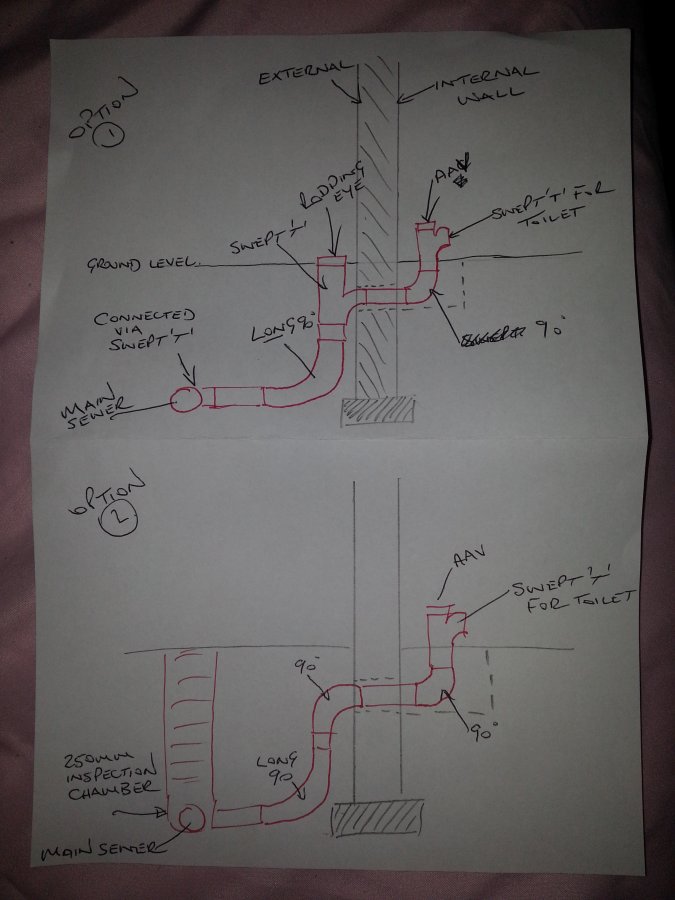 OPTION
1
EXTERNAL
INTERNAL
WALL
RODDING
EYE
SWEPT 'T'
AAV
SWEPT 'T' FOR
TOILET
GROUND LEVEL
CONNECTED
VIA
SWEPT 'T'
LONG 90°
90°
MAIN
SEWER
OPTION
2
AAV
SWEPT 'T'
FOR TOILET
90°
90°
LONG
90
250MM
INSPECTION
CHAMBER
MAIN SEWER